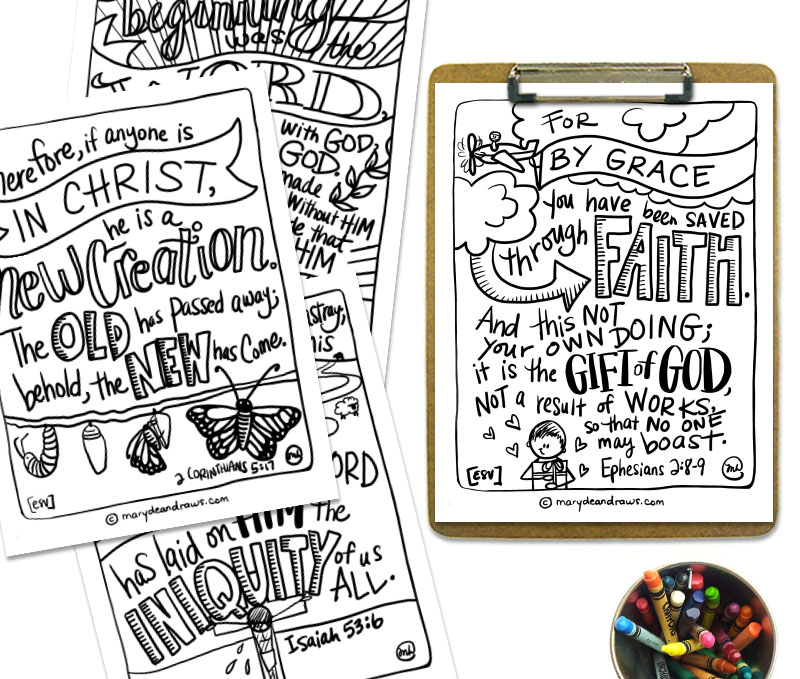 beginning
was the
WORD,
with GOD,
GOD.
made
without HIM
that
HIM
Therefore, if anyone is
IN CHRIST,
he is a
new Creation.
The OLD has passed away;
behold, the NEW has come.
2 CORINTHIANS 5:17
[ESV]
© marydeandraws.com
astray;
his
LORD
has laid on HIM the
INIQUITY of us
ALL.
Isaiah 53:6
FOR
BY GRACE
you have been SAVED
through FAITH.
And this NOT
your OWN DOING;
it is the GIFT of GOD,
NOT a result of WORKS,
so that NO ONE
may boast.
Ephesians 2:8-9
[ESV]
© marydeandraws.com